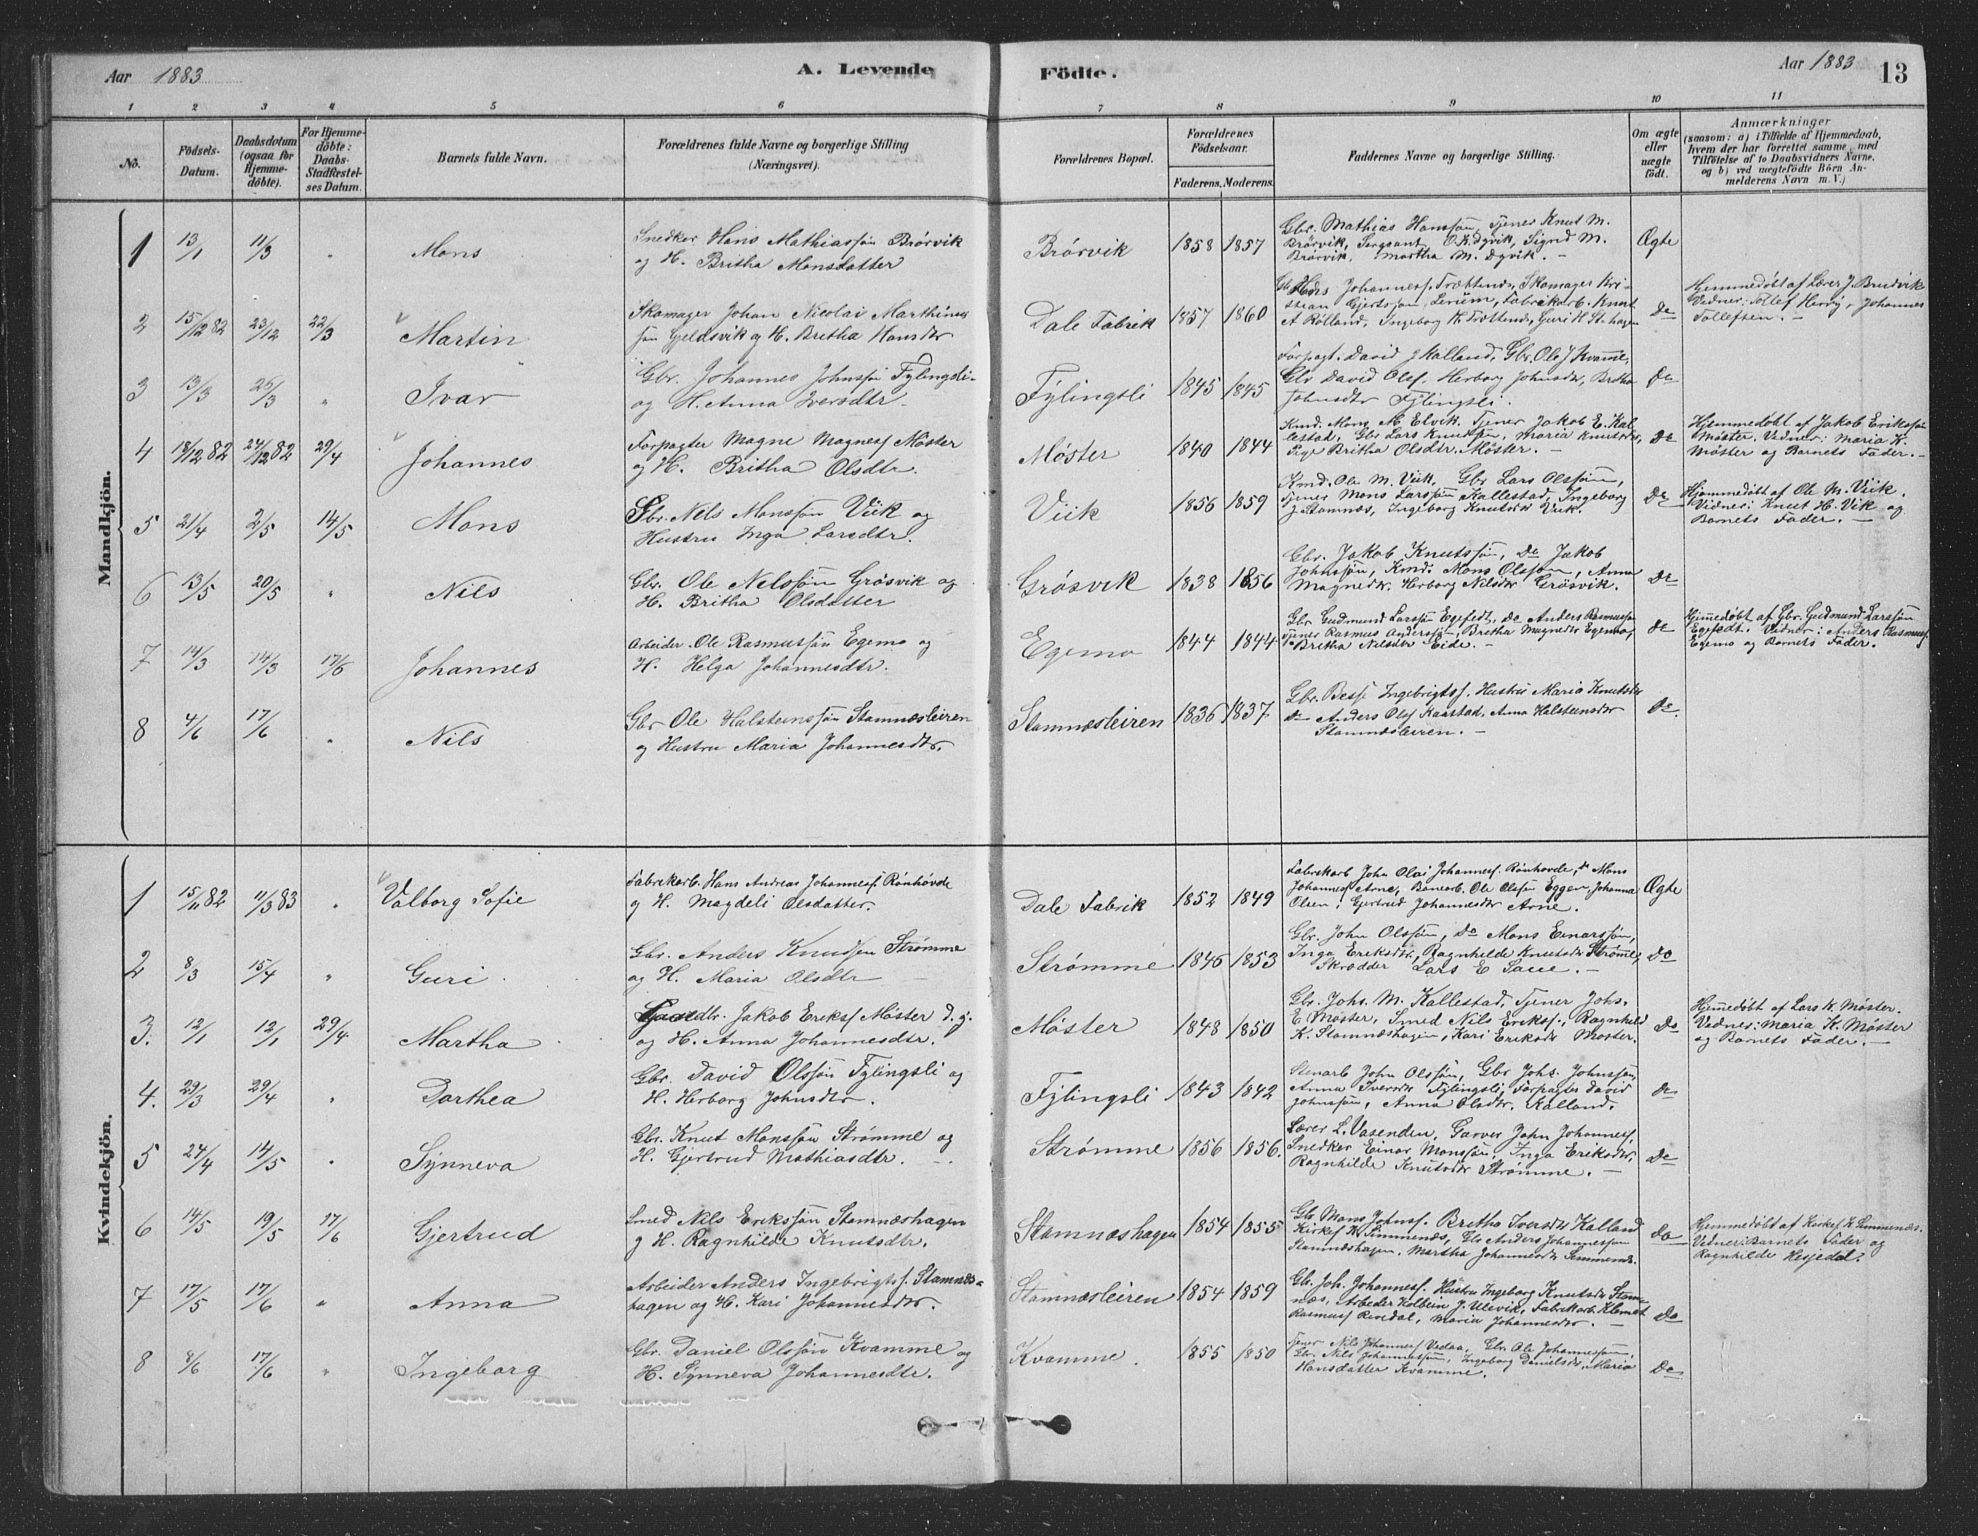 Aar 1883
A. Levende
Födte.
Aar 1883
13
1 2 3 4 5 6 7 8 9 10 11
No.
Födsels-
Datum.
Daabsdatum
(ogsaa for
Hjemme-
döbte).
For Hjemme-
döbte:
Daabs-
Stadfæstel-
ses Datum.
Barnets fulde Navn.
Forældrenes fulde Navne og borgerlige Stilling
(Næringsvei).
Forældrenes Bopæl.
Forældrenes
Födselsaar.
Faderens. Moderens.
Faddernes Navne og borgerlige Stilling.
Om ægte
eller
uægte
födt.
Anmærkninger
(saasom: a) i Tilfælde af Hjemmedaab,
hvem der har forrettet samme, med
Tilföielse af to Daabsvidners Navne,
og b) ved uægtefödte Börn An-
melderens Navn m. V.)
Mandkjön.
1 13/1 11/3 " Mons
Snedker Hans Mathiassön Brörvik
og H. Britha Monsdatter
Brörvik 1858 1857
Gbr. Mathias Hanssön, Tjener Knut M.
Brörvik, Sergeant O. K. Dyvik, Sigrid M.
Brörvik, Martha M. Dyvik. –
Ægte
2 15/12 82 23/12 22/3 Martin
Skomager Johan Nicolai Marthinus
sön Gjeldsvik og H. Britha Hansdtr
Dale Fabrik 1857 1860
Johannesf. Trættenes, Skomager Kri-
stian Gjertssön Lerum, Fabrikarb. Knut
A Rölland, Ingeborg K. Trættenes, Guri H Stenhagen
do
Hjemmedöbt af Lærer J Brudvik
Vidner: Tollef Hervö, Johannes
Tollefsen. –
3 13/3 25/3 " Ivar
Gbr. Johannes Johnssön Fÿlingsli-
og H. Anna Iversdtr.
Fÿlingsli 1845 1845
Forpagt. David J Kalland, Gbr. Ole J Kvamme,
Gbr David Olsf. Herborg Johnsdtr, Britha
Johnsdtr Fÿlingsli.
do
4 18/12 82 24/12 82 29/4 Johannes
Forpagter Magne Magnesf Möster
og H. Britha Olsdtr.
Möster 1840 1844
Kmd. Mons M. Elvik. Tjener Jakob E. Kal-
lestad, Gbr Lars Knutsön, Maria Knutsdtr,
Pige Britha Olsdtr. Möster. –
do
Hjemmedöbt af Jakob Erikssön
Möster. Vidner: Maria K.
Möster og Barnets Fader. –
5 21/4 2/5 14/5 Mons
Gbr. Nels Monssön Viik og
Hustru Inga Larsdtr.
Viik 1856 1859
Kmd. Ole M. Viik, Gbr Lars Olssön,
Tjener Mons Larssön Kallestad, Ingeborg
J Stamnæs, Ingeborg Knutsdtr Viik.
do
Hjemmedöbt af Ole M. Viik.
Vidner: Knut H. Vik og
Barnets Fader. –
6 13/5 20/5 " Nils
Gbr. Ole Nelssön Grösvik og
H. Britha Olsdatter
Grösvik 1838 1856
Gbr. Jakob Knutssön, do Jakob
Johnssön, Kmd. Mons Olsson, Anna
Magnedtr, Herborg Nilsdtr Grösvik.
do
7 14/3 14/3 17/6 Johannes
Arbeider Ole Rasmussön Egemo og
H. Helga Johannesdtr.
Egemo 1844 1844
Gbr. Gudmund Larssön Egefedt, do Anders Rasmussön
Tjener Rasmus Anderssön, Britha Magnedtr Egenhag
Britha Nilsdtr Eide. –
do
Hjemedöbt af Gbr. Gudmund Larssön
Egefedt. Vidner: Anders Rasmusf
Egemo og Barnets Fader.
8 4/6 17/6 " Nils
Gbr Ole Halsteinssön Stamnæsleiren
og Hustru Maria Johannesdtr.
Stamnæsleiren 1836 1837
Gbr. Besse Ingebrigtsf. Hustru Maria Knutsdtr
do Anders Olsf Kaarstad, Anna Halsteinsdtr
Stamnæsleiren. –
do.
Kvindekjön.
1 15/11 82 11/3 83 " Valborg Sofie
Fabrikarb. Hans Andreas Johannesf. Rönhövde
og H. Magdeli Olsdatter.
Dale Fabrik 1852 1849
Fabrikarb John Olai Johannesf. Rönhovde, do Mons
Johannesf Arne, Banearb. Ole Olsön Eggen, Johanna
Olsen, Gjertrud Johannesdtr Arne.
Ægte
2 8/3 15/4 " Guri
Gbr. Anders Knudsen Strömme
og H. Maria Olsdtr
Strömme 1846 1853
Gbr. John Olssön, do Mons Einarssön,
Inga Eriksdtr, Ragnhilde Knutsdtr Strömme,
Skrædder Lars E Saue. –
do
3. 12/1 12/1 29/4 Martha
Jakob Eriksf Möster d. y.
og H. Anna Johannesdtr.
Möster 1848 1850
Gbr. Johs. M. Kallestad, Tjener Johs.
E. Möster, Smed Nils Eriksf., Ragnhild
K. Stamnæshagen, Kari Eriksdtr Möster.
do
Hjemedöbt af Lars K. Möster.
Vidner: Maria K. Möster
og Barnets Fader. –
4. 29/3 29/4 " Dorthea
Gbr. David Olssön Fÿlingsli og
H. Herborg Johnsdtr.
Fÿlingsli 1843 1842
Stenarb John Olssön, Gbr Johs. Johnssön,
Anna Iversdtr Fÿlingsli, Forpagter David
Johnssön, Anna Olsdtr. Kalland.
do
5 24/4 14/5 " Sÿnneva
Gbr. Knut Monssön Strömme og
H. Gjertrud Mathiasdtr.
Strömme 1856 1856.
Lærer L. Vasenden, Garver John Johannesf,
Snedker Einar Monssön, Inga Eriksdtr,
Ragnhilde Knutsdtr Strömme. –
do
6 14/5 19/5 17/6 Gjertrud
Smed Nils Erikssön Stamnæshagen
og H. Ragnhilde Knutsdtr.
Stamnæshagen 1854 1855
Gbr Mons Johnsf. Britha Iversdtr Kalland
Kirkes. K. Simmenæs, Gbr Anders Johannessön
Stamnæshagen, Martha Johannesdtr Simmenæs.
do
Hjemmedöbt af Kirkes K. Simmenæs.
Vidner: Barnets Fader og
Ragnhilde Hesjedal.
7 17/5 17/6 " Anna
Arbeider Anders Ingebrigtsf. Stamnæs-
hagen og H. Kari Johannesdtr.
Stamnæsleiren 1854 1859
Gb. Joh. Johannesf. Hustru Ingeborg Knutsdtr Stam-
næs, Arbeider Kolbein J. Ulevik, Fabrikarb. Klemet
Rasmusf Rivedal, Maria Johannesdtr. –
do
8 8/6 17/6 " Ingeborg
Gbr. Daniel Olssön Kvamme og
H. Sÿnneva Johannesdtr.
Kvamme. 1855 1850
Tjener Nils Johannesf Vedaa, Gbr. Ole Johannessön,
Gbr. Nils Johannessön, Ingeborg Danielsdtr, Maria
Hansdatter Kvamme.
do